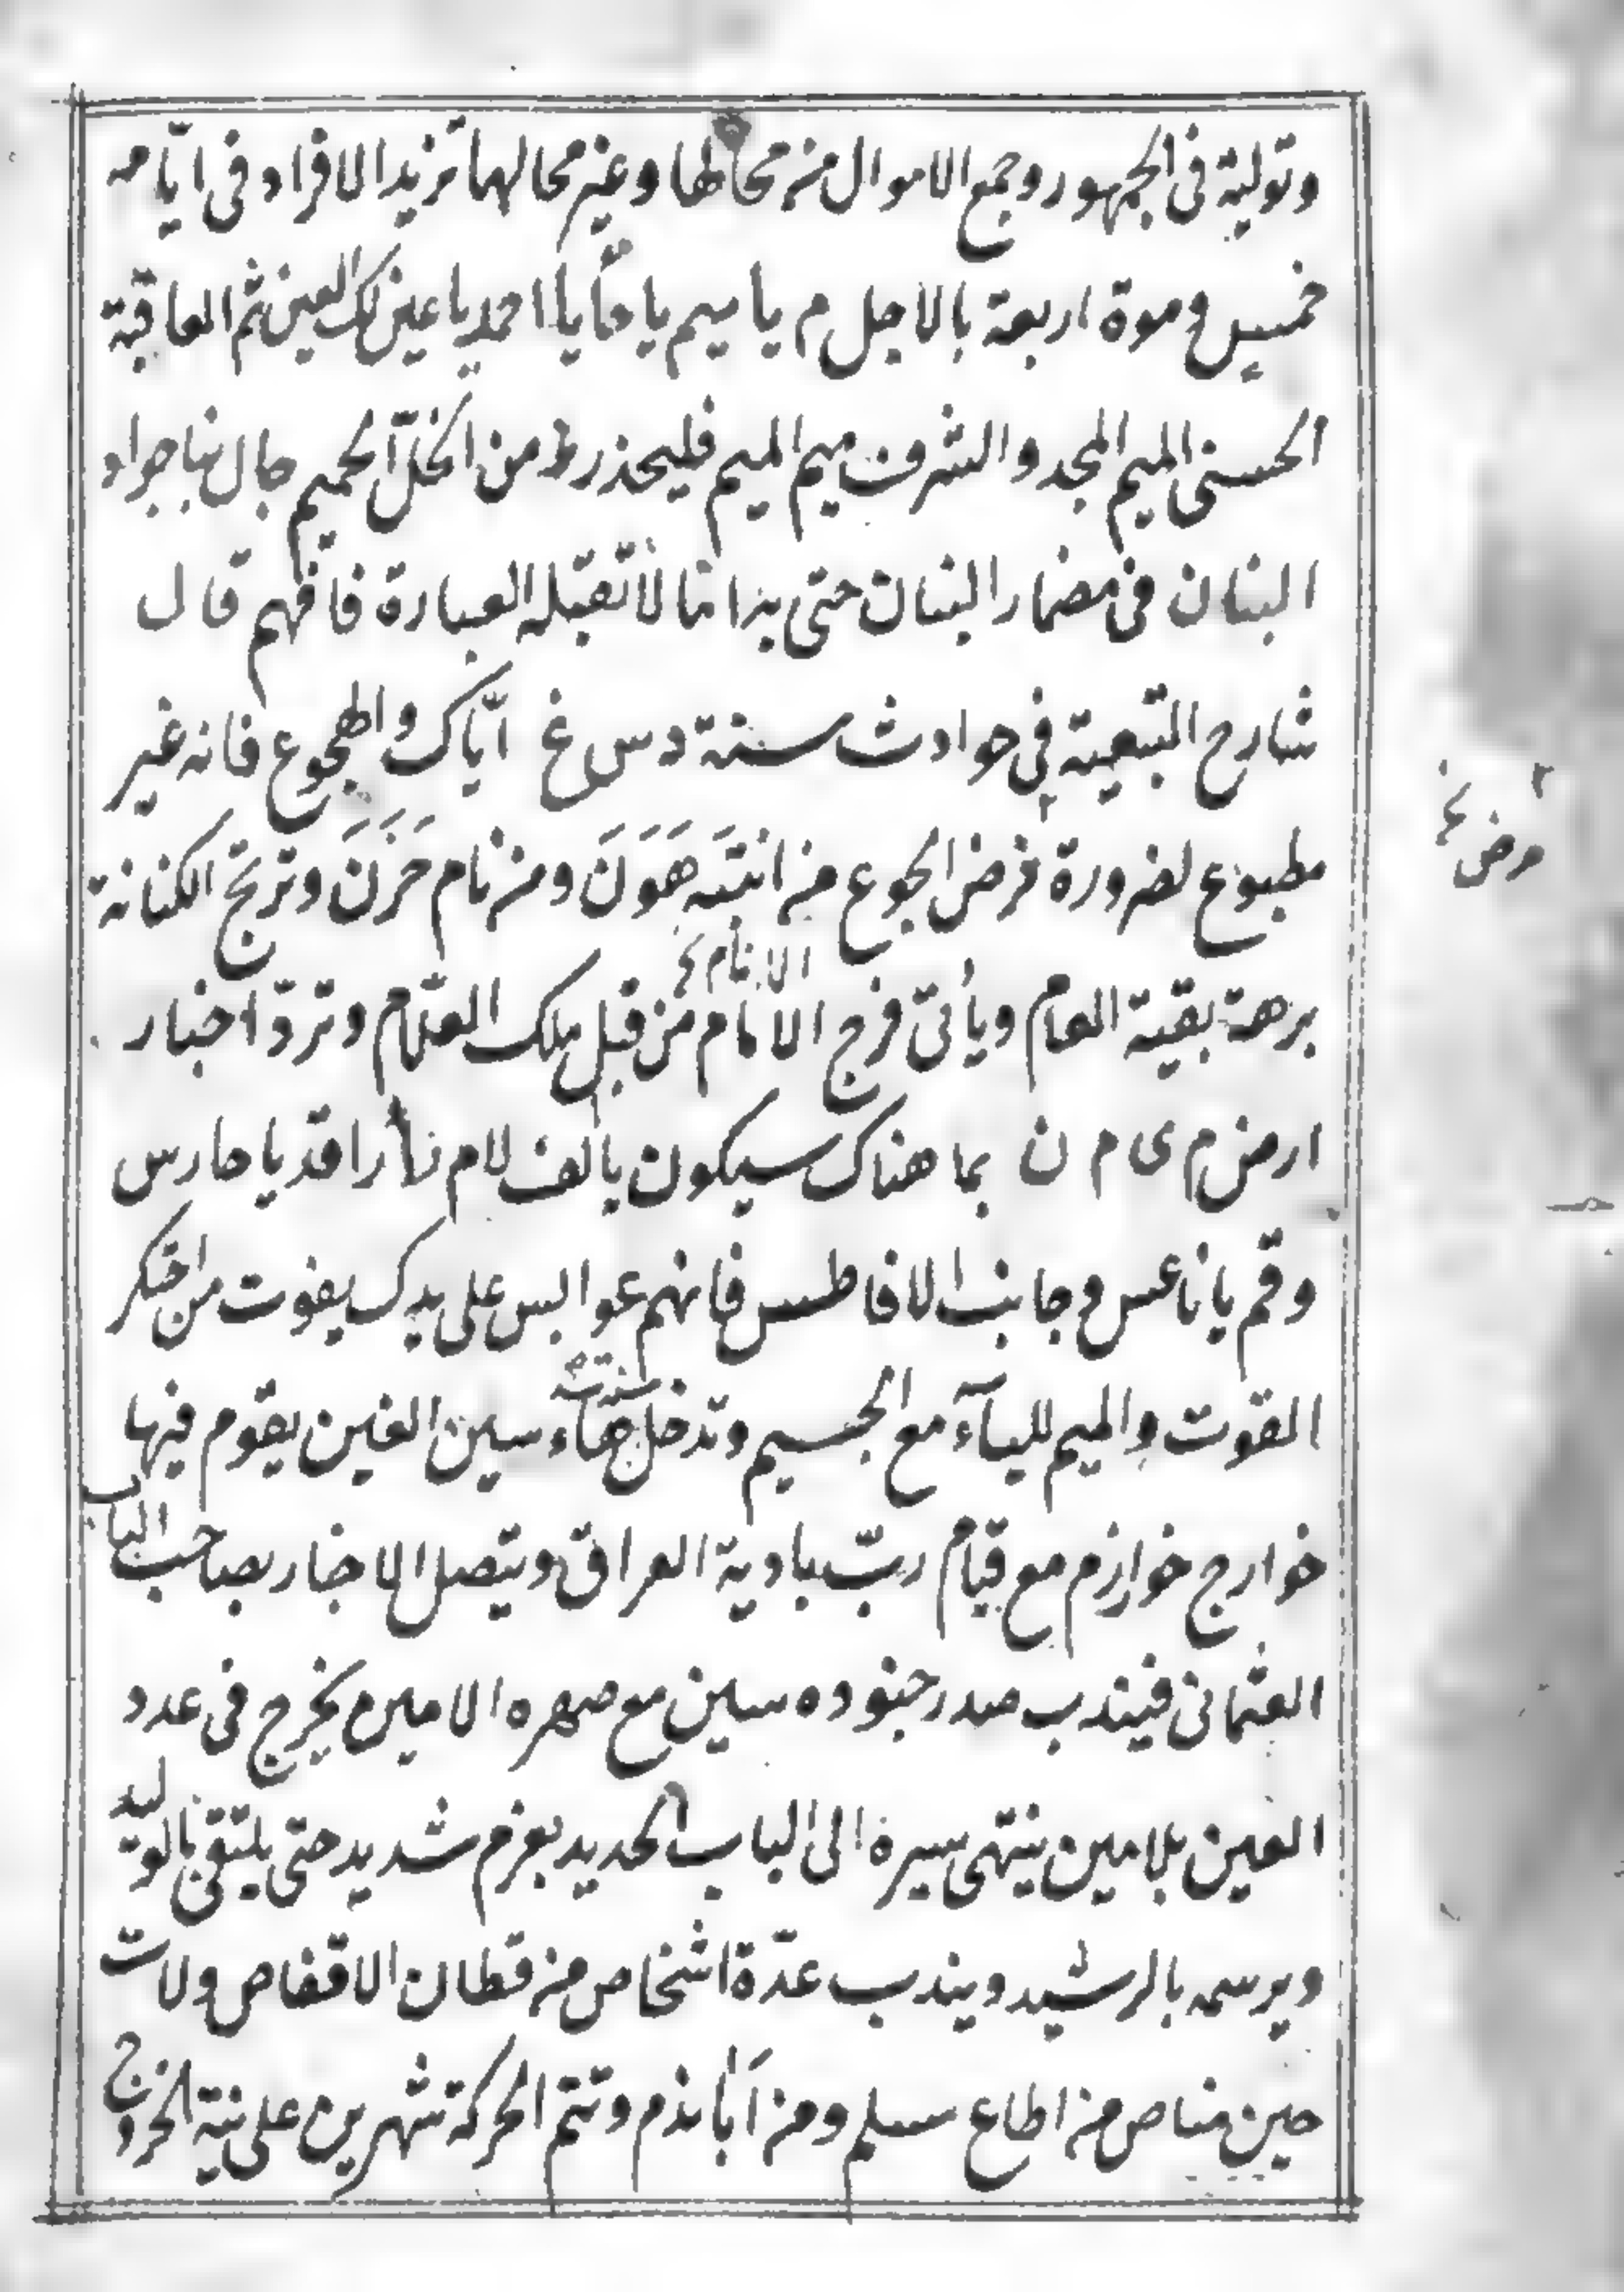 وتولية فى الجمهور وجمع الاموال من محالها وغير محالها تزيد الافراد فى ايّامه
خمس وموة اربعة بالاجل م يا ميم يا حا يا احمد يا عين لك العين ثم العاقبة
الحسنى الميم المجد والشرف ميم الميم فليحذر ط من الخلّ الحميم جال بنا جواد
البنان فى مضمار البنان حتى بدا لنا ما لا تقبله العبارة فافهم قال
شارح المتبعية فى حوادث سنة د س غ ايّاك والهجوع فانه غير
مطبوع لضرورة فرض الجوع من انتبَه هَوَنَ ومن نام حَزَنَ وترتج الكنانة
برهة بقية العام ويأتى فرج الانام من قبل ملك العلّام وتردّ اخبار
ارض م ى م ن بما هناك سيكون يا الف لام را راقد يا حارس
وقم يا ناعس وجانب الافاطس فانهم عوابس على يدك يفوت من احتكر
القوت والميم للياء مع الجسيم وتدخل سنة هاء سين الغين يقوم فيها
خوارج خوارزم مع قيام ربّ بادية العراق ويتصل الاخبار بصاحب الباب
العثمانى فيندب صدر جنوده سين مع صهره الامين م يخرج فى عدد
العين بلا مين ينتهى سيره الى الباب الحديد بعزم شديد حتى يلتقى بالوليد
ويرسمه بالرشيد ويندب عدّة اشخاص من قطان الاقفاص ولات
حين مناص من اطاع سلم ومن اَبا نذم وتتم الحركة شهرين على نية الخروج
الانام خ
مرض خ